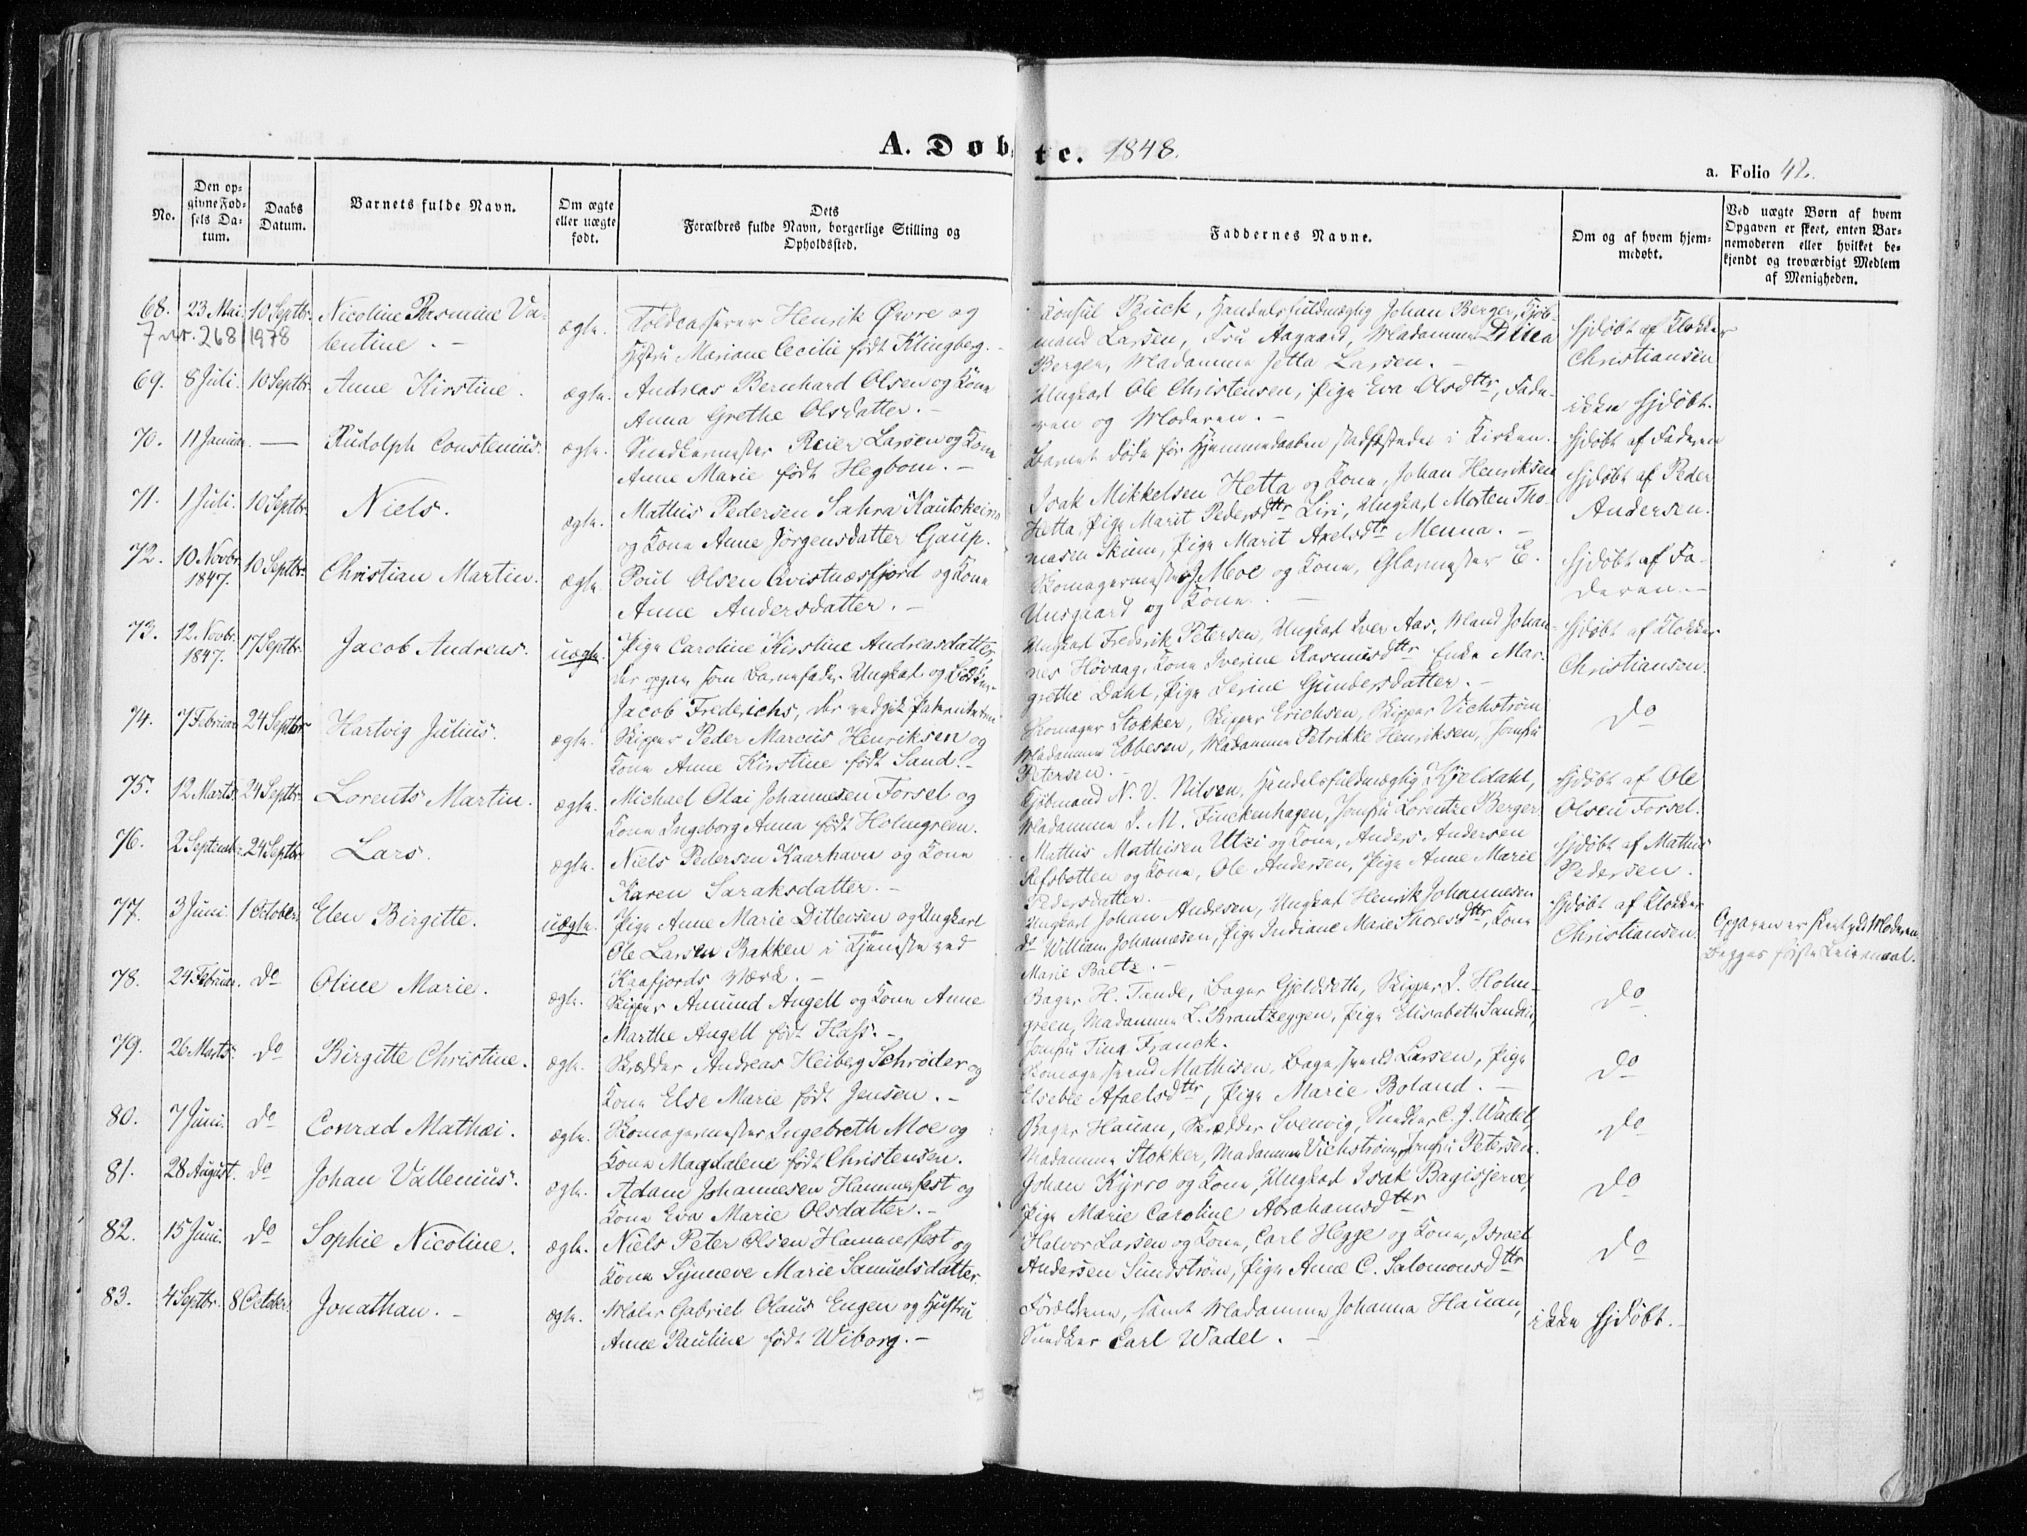 A. Døbte. 1848.
a. Folio 42.
No.
Den op-
givne Fød-
sels Da-
tum.
Daabs
Datum.
Barnets fulde Navn.
Om ægte
eller uægte
født.
Dets
Forældres fulde Navn, borgerlige Stilling og
Opholdssted.
Faddernes Navne.
Om og af hvem hjem-
medøbt.
Ved uægte Børn af hvem
Opgaven er skeet, enten Bar-
nemoderen eller hvilket be-
kjendt og troværdigt Medlem
af Menigheden.
68. 23 Mai. 10 Septbr. Nicoline Rasmine Va-
7 nr. 268/1978 lentine. -
ægte.
Toldcasserer Henrik Øwre og
Hustru Mariane Cecilie født Klingberg. -
Konsul Buck, Handelsfuldmægtig Johan Berger, Kjøb-
mand Larsen, Fru Aagaard, Madamme Dina
Berger, Madamme Jetta Larsen. -
Hjdøbt af Klokker
Christiansen
69. 8 Juli. 10 Septbr. Anne Kirstine.
ægte.
Andreas Bernhard Olsen og Kone
Anna Grethe Olsdatter. -
Ungkarl Ole Christensen, Pige Eva Olsdttr, Fade-
ren og Moderen. -
ikke hjdøbt.
70. 11 Januar. — Rudolph Constenius.
ægte.
Snedkermester Reier Larsen og Kone
Anne Marie født Hegbom. -
Barnet døde før Hjemmedaaben stadfæstedes i Kirken.
Hjdøbt af Faderen
71. 1 Juli. 10 Septbr. Niels.
ægte.
Mathis Pedersen Sahra Kautokeino
og Kone Anne Jörgensdatter Gaup.
Isak Mikkelsen Hetta og Kone, Johan Henriksen
Hetta, Pige Marit Pedersdttr Siri, Ungkarl Morten Tho-
masen Skum, Pige Marit Axelsdttr Menna. -
Hjdøbt af Peder
Andersen.
72. 10. Novbr. 1847. 10 Septbr. Christian Martin.
ægte.
Poul Olsen Qvistnæsfjord og Kone
Anne Andersdatter. -
Skomagermester J. Moe og Kone, Glarmester E.
Unsgaard og Kone. -
Hjdøbt af Fa-
deren. -
73. 12. Novbr. 1847. 17 Septbr. Jacob Andreas.
uægte.
Pige Caroline Kirstine Andreasdatter
der opgav som Barnefader Ungkarl og
Jacob Frederichs, der vedgik Paterniteten
Ungkarl Frederik Petersen, Ungkarl Iver Aas, Mand Johan-
nes Høvaag, Kone Iverine Rasmusdttr, Enke Mar-
grethe Dahl, Pige Serine Gundersdatter. -
Hjdøbt af Klokker
Christiansen.
74. 7 Februar. 24 Septbr. Hartvig Julius.
ægte.
Skipper Peder Marcus Henriksen og
Kone Anne Kirstine født Sand. -
Skomager Stokker, Skipper Erichsen, Skipper Vichstrøm
Madamme Ebbesen, Madamme Petrikke Henriksen, Jomfru
Petersen. -
do
75. 12 Marts. 24 Septbr. Lorents Martin.
ægte.
Michael Olai Johannesen Forsel og
Kone Ingeborg Anna født Holmgreen.
Kjøbmand N. V. Nilsen, Handelsfuldmægtig Kjeldahl,
Madamme I. M. Finckenhagen, Jomfru Lorentze Berger
Hjdøbt af Ole
Olsen Forsel.
76. 2 Septembr. 24 Septbr. Lars.
ægte.
Niels Pedersen Kaarhavn og Kone
Karen Saraksdatter. -
Mathis Mathisen Utzi og Kone, Anders Andersen
Refsbotten og Kone, Ole Andersen, Pige Anne Marie
Pedersdatter. -
Hjdøbt af Mathis
Pedersen.
77. 3 Juni. 1 October. Elen Birgitte.
uægte.
Pige Anne Marie Ditlevsen og Ungkarl
Ole Larsen Bakken i Tjeneste ved
Kaafjords Værk. -
Ungkarl Johan Andresen, Ungkarl Henrik Johannesen
do William Johannesen, Pige Indiane Marie Thoresdttr, Kone
Marie Baltz. -
Hjdøbt af Klokker
Christiansen.
Opgaven er skeet ved Moderen
Begges første Leiermaal.
78. 24 Februar. do Oline Marie.
ægte.
Skipper Amund Angell og Kone Anne
Marthe Angell født Hass. -
Bager H. Tande, Bager Gjeldseth, Skipper J. Holm-
green, Madamme L. Brantzeggen, Pige Elisabeth Sandin,
Jomfru Tina Franck.
do
79. 26 Marts. do Birgitte Christine.
ægte.
Skrædder Andreas Heiberg Schrøder og
Kone Else Marie født Jensen. -
Skomagersvend Mathisen, Bagersvend Larsen, Pige
Elseble Afaelsdttr, Pige Marie Boland. -
do
80. 7 Juni. do Conrad Mathæi.
ægte.
Skomagermester Ingebreth Moe og
Kone Magdalene født Christensen.
Bager Hauan, Skrædder Svenvig, Snedker C. J. Wadel,
Madamme Stokker, Madamme Vichstrøm, Jomfru Petersen.
do
81. 28 August. do Johan Vallenius.
ægte.
Adam Johannesen Hammerfest og
Kone Eva Marie Olsdatter. -
Johan Kyrro og Kone, Ungkarl Isak Bagisjerve,
Pige Marie Caroline Abrahamsdttr
do
82. 15 Juni. do Sophie Nicoline.
ægte.
Niels Peter Olsen Hammerfest og
Kone Synneve Marie Samuelsdatter.
Halvor Larsen og Kone, Carl Hegge og Kone, Israel
Andersen Sundstrøm, Pige Anne C. Salomonsdttr
do
83. 4 Septbr. 8 October. Jonathan. -
ægte.
Maler Gabriel Olaus Eugen og Hustru
Anne Pauline født Wiborg. -
Forældrene, samt Madamme Johanna Hauan,
Snedker Carl Wadel. -
ikke hjdøbt. -